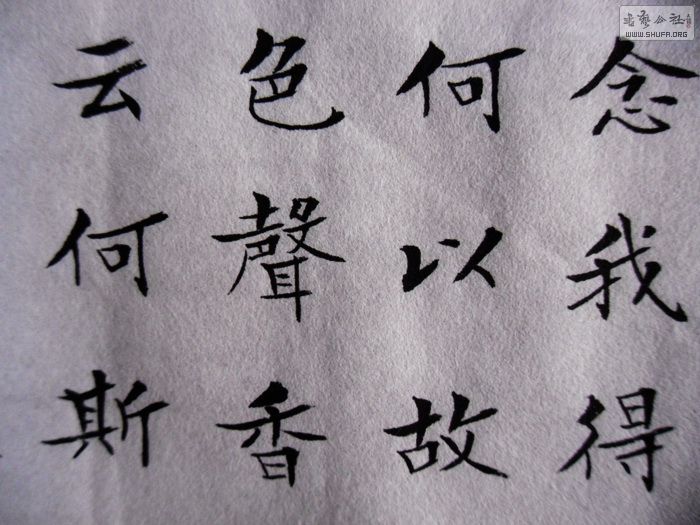 念我得
何以故
色聲香
云何斯
WWW.SHUFA.ORG